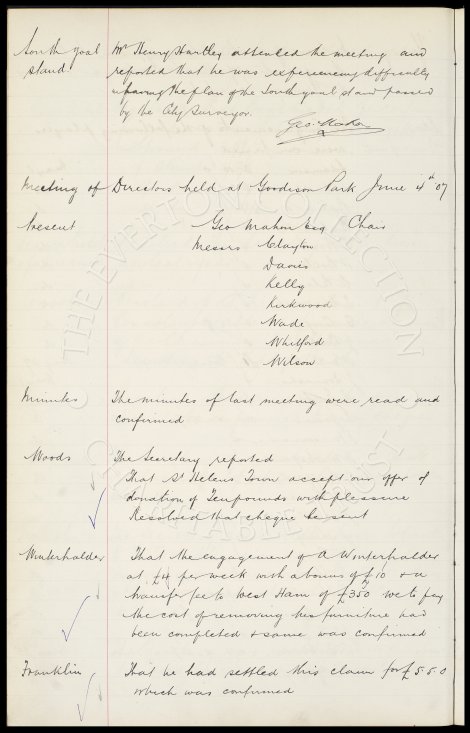 South goal
stand.
Mr Henry Hartley attended the meeting and
reported that he was experiencing difficulty
in having the plan of the South goal stand passed
by the City Surveyor.
Geo. Mahon
Meeting of Directors held at Goodison Park June 4th 07
Present
Geo Mahon Esq Chair
Messrs Clayton
Davies
Kelly
Kirkwood
Wade
Whitford
Wilson
Minutes
The minutes of last meeting were read and
confirmed
Woods
The Secretary reported
That St Helens Town accept our offer of
donation of Ten pounds with pleasure
Resolved that cheque be sent
Winterhalder
That the engagement of A Winterhalder
at £4 per week with a bonus of £10 & a
transfer fee to West Ham of £350 we to pay
the cost of removing his furniture had
been completed & same was confirmed
Franklin
That he had settled this claim for £5.5.0
which was confirmed
THE EVERTON COLLECTION
CHARITABLE TRUST